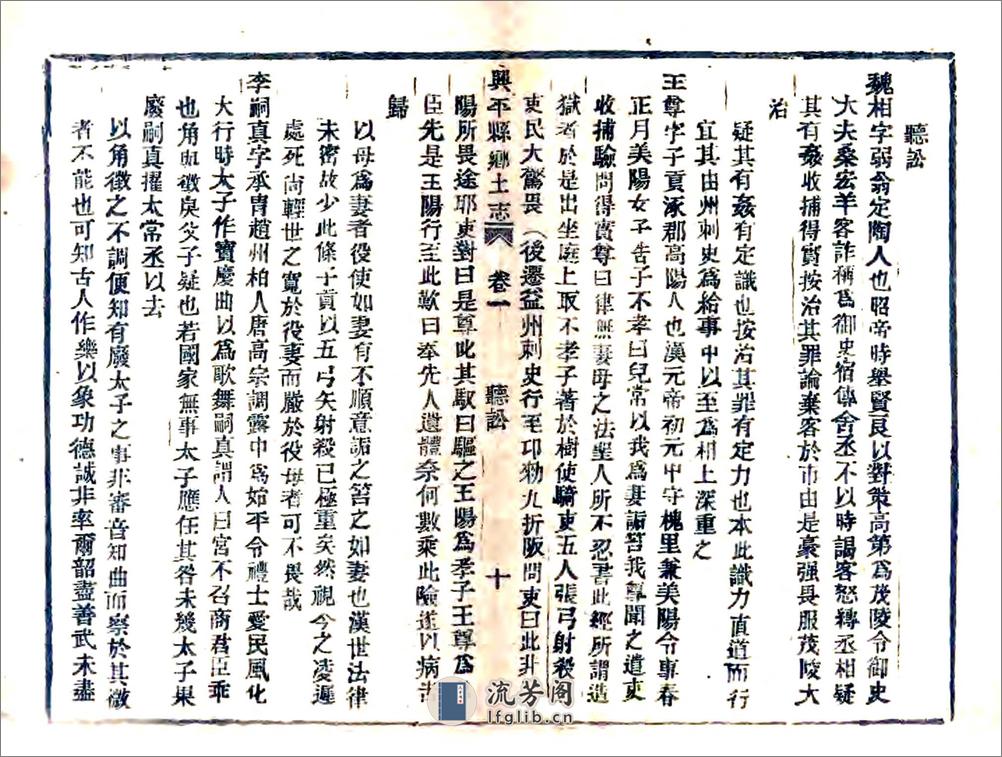 聽訟
魏相字弱翁定陶人也昭帝時舉賢良以對策高第爲茂陵令御史
大夫桑宏羊客詐稱爲御史宿傳舍丞不以時謁客怒縛丞相疑
其有姦收捕得實按治其罪論棄客於市由是豪强畏服茂陵大
治
疑其有姦有定識也按治其罪有定力也本此識力直道而行
宜其由州刺史爲給事中以至爲相上深重之
王尊字子貢涿郡高陽人也漢元帝初元中守槐里兼美陽令事春
正月美陽女子告子不孝曰兒常以我爲妻詬笞我尊聞之遣吏
收捕驗問得實尊曰律無妻母之法聖人所不忍書此經所謂造
獄者於是出坐庭上取不孝子著於樹使騎吏五人張弓射殺
吏民大驚畏（後遷益州刺史行至邛郲九折阪問吏曰此非王
興平縣鄉土志 卷一 聽訟 十
陽所畏途耶吏對曰是尊叱其馭曰驅之王陽爲孝子王尊爲忠
臣先是王陽行至此歎曰奉先人遺體奈何數乘此險遂以病去
歸
以母爲妻者役使如妻有不順意詬之笞之如妻也漢世法律
未密故少此條子貢以五弓矢射殺已極重矣然視今之凌遲
處死尚輕世之寬於役妻而嚴於役母者可不畏哉
李嗣真字承胄趙州柏人唐高宗調露中爲始平令禮士愛民風化
大行時太子作寶慶曲以爲歌舞嗣真謂人曰宮不召商君臣乖
也角與徵戾父子疑也若國家無事太子應任其咎未幾太子果
廢嗣真擢太常丞以去
以角徵之不調便知有廢太子之事非審音知曲而察於其微
者不能也可知古人作樂以象功德誠非率爾韶盡善武未盡
流芳阁
lfglib.cn